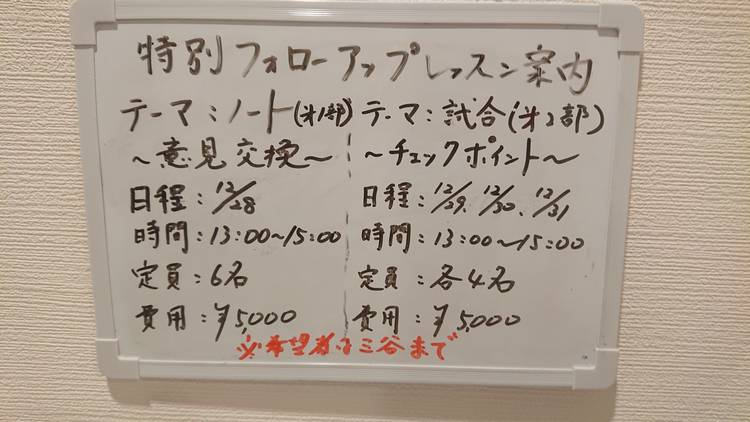 特別フォローアップレッスン案内
テーマ:ノート(第1部)
~意見交換~
日程:12/28
時間:13:00~15:00
定員:6名
費用:¥5,000
テーマ:試合(第2部)
~チェックポイント~
日程:12/29、12/30、12/31
時間:13:00~15:00
定員:各4名
費用:¥5,000
※希望者は三谷まで